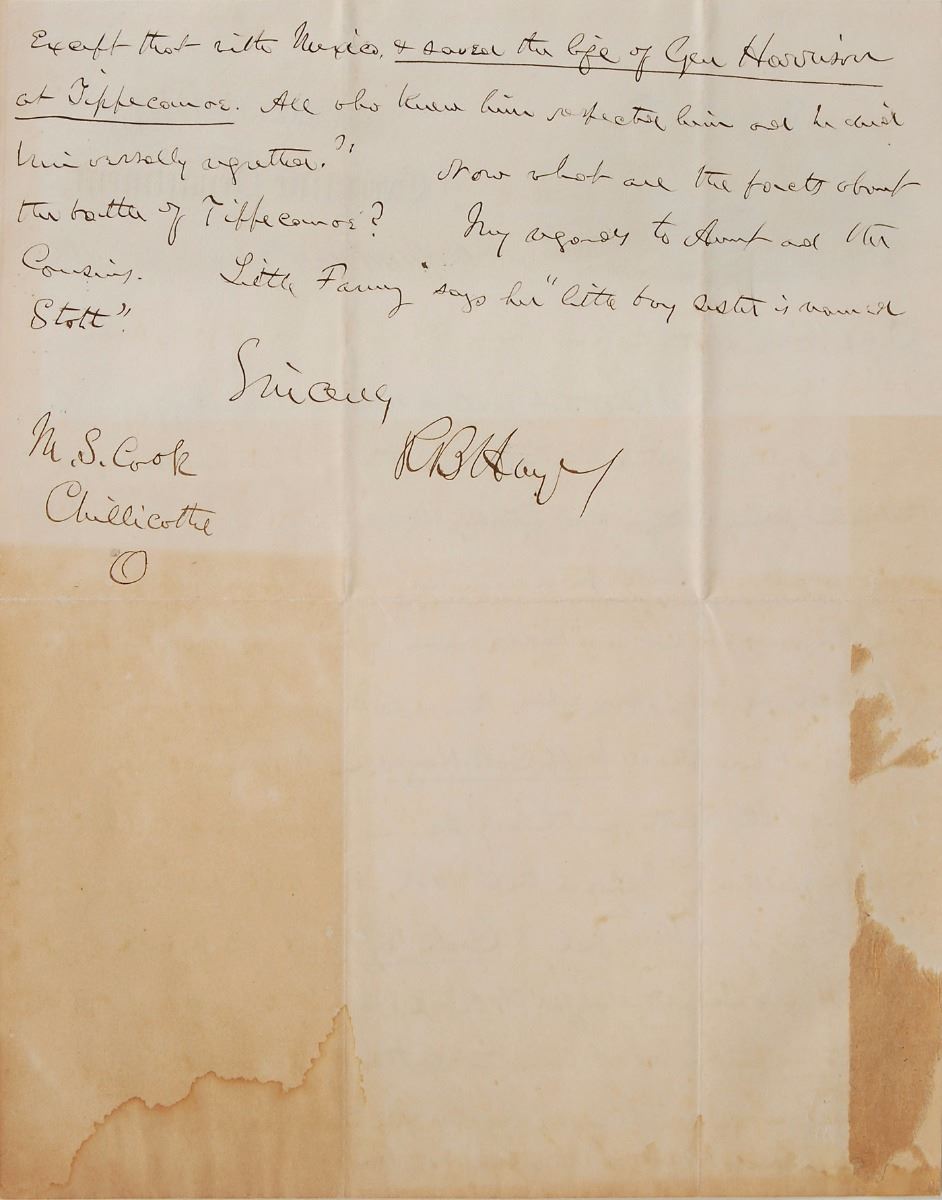 Except that with Mexico, & saved the life of Gen Harrison
at Tippecanoe. All who knew him respected him and he died
universally regretted."
Now what are the facts about
the battle of Tippecanoe? My regards to Aunt and the
Cousins. Little Fanny says her "little boy sister is named
Stott".
Sincerely
R B Hayes
M. S. Cook
Chillicothe
O